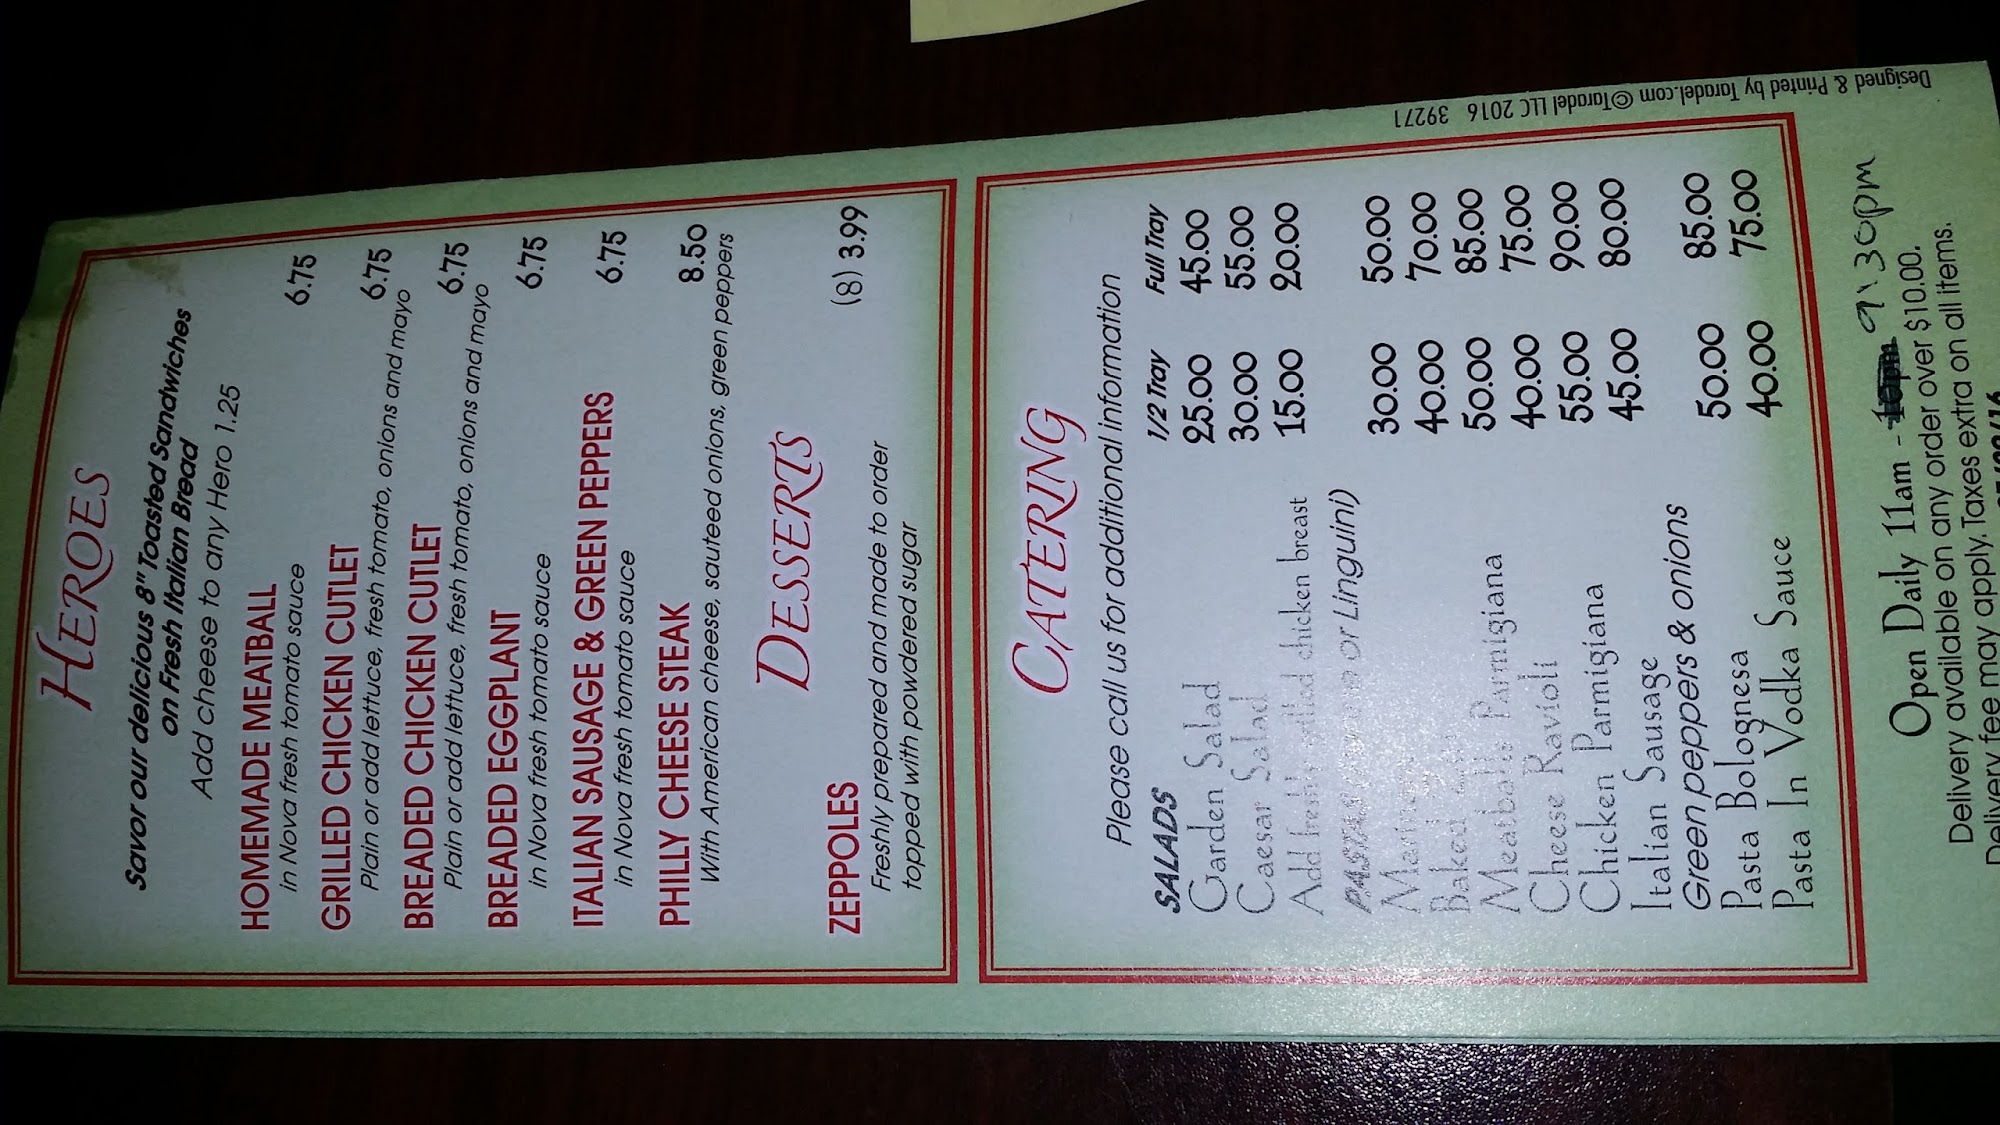 HEROES
Savor our delicious 8" Toasted Sandwiches
on Fresh Italian Bread
Add cheese to any Hero 1.25
HOMEMADE MEATBALL 6.75
in Nova fresh tomato sauce
GRILLED CHICKEN CUTLET 6.75
Plain or add lettuce, fresh tomato, onions and mayo
BREADED CHICKEN CUTLET 6.75
Plain or add lettuce, fresh tomato, onions and mayo
BREADED EGGPLANT 6.75
in Nova fresh tomato sauce
ITALIAN SAUSAGE & GREEN PEPPERS 6.75
in Nova fresh tomato sauce
PHILLY CHEESE STEAK 8.50
With American cheese, sauteed onions, green peppers
DESSERTS
ZEPPOLES (8) 3.99
Freshly prepared and made to order
topped with powdered sugar
CATERING
Please call us for additional information
SALADS 1/2 Tray Full Tray
Garden Salad 25.00 45.00
Caesar Salad 30.00 55.00
Add freshly grilled chicken breast 15.00 20.00
PASTAS or Linguini)
30.00 50.00
Baked 40.00 70.00
Meatballs Parmigiana 50.00 85.00
Cheese Ravioli 40.00 75.00
Chicken Parmigiana 55.00 90.00
Italian Sausage 45.00 80.00
Green peppers & onions
Pasta Bolognesa 50.00 85.00
Pasta In Vodka Sauce 40.00 75.00
Open Daily 11am - 9:30pm
Delivery available on any order over $10.00.
Delivery fee may apply. Taxes extra on all items.
Designed & Printed by Taradel.com ©Taradel LLC 2016 39271